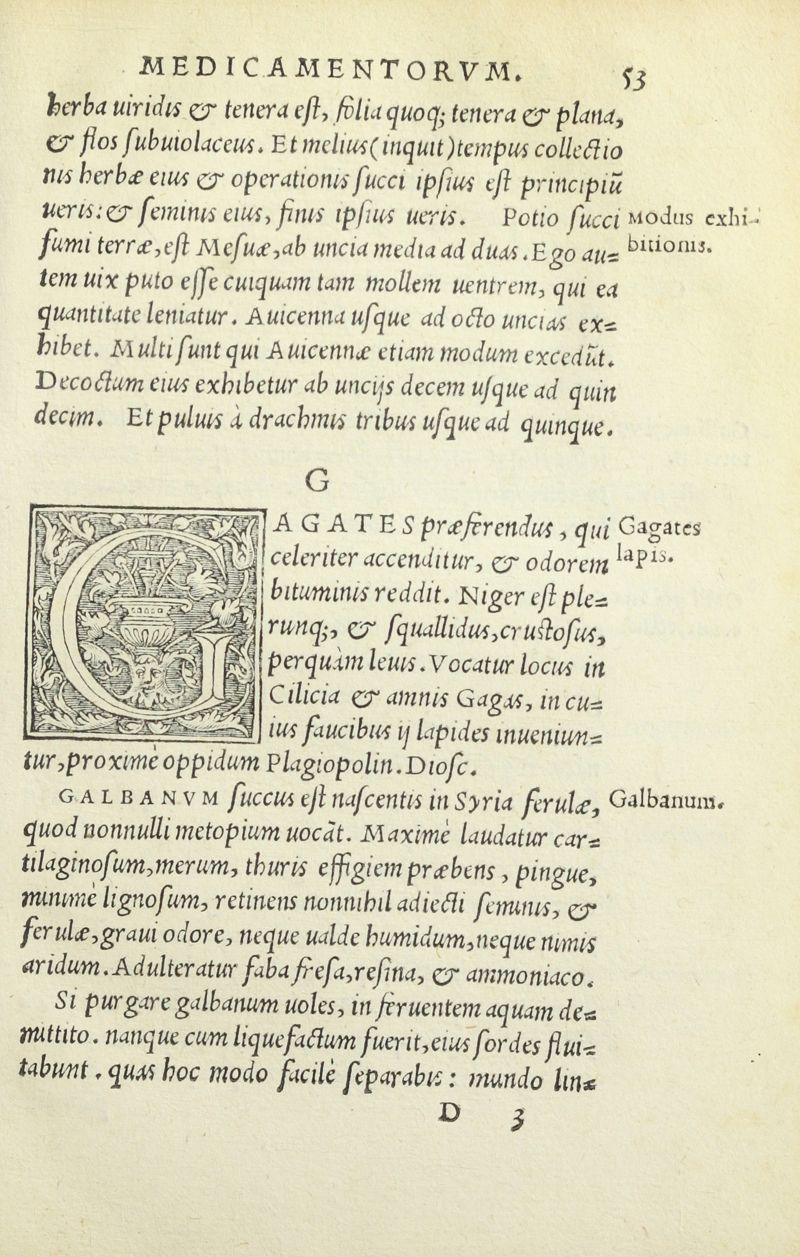 MEDICAMENTORVM. 53
herba uiridis & tenera eſt, folia quoq; tenera & plana,
& flos ſubuiolaceus. Et melius (inquit) tempus collectio
nis herbæ eius & operationis ſucci ipſius eſt principiũ
ueris: & ſeminis eius, finis ipſius ueris. Potio ſucci
Modus exhi-
fumi terræ, eſt Meſuæ, ab uncia media ad duas. Ego au=
bitionis.
tem uix puto eſſe cuiquam tam mollem uentrem, qui ea
quantitate leniatur. Auicenna uſque ad octo uncias ex=
hibet. Multi ſunt qui Auicennæ etiam modum excedũt.
Decoctum eius exhibetur ab uncijs decem uſque ad quin
decim. Et puluis à drachmis tribus uſque ad quinque.
G
GAGATES præferendus, qui
Gagates
celeriter accenditur, & odorem
lapis.
bituminis reddit. Niger eſt ple=
runq;, & ſquallidus, cruſtoſus,
perquàm leuis. Vocatur locus in
Cilicia & amnis Gagas, in cu=
ius faucibus ij lapides inueniun=
tur, proximè oppidum Plagiopolin. Dioſc.
GALBANVM ſuccus eſt naſcentis in Syria ferulæ,
Galbanum.
quod nonnulli metopium uocãt. Maximè laudatur car=
tilaginoſum, merum, thuris effigiem præbens, pingue,
minimè lignoſum, retinens nonnihil adiecti ſeminis, &
ferulæ, graui odore, neque ualde humidum, neque nimis
aridum. Adulteratur faba freſa, reſina, & ammoniaco.
Si purgare galbanum uoles, in feruentem aquam de=
mittito. nanque cum liquefactum fuerit, eius ſordes flui=
tabunt. quas hoc modo facilè ſeparabis: mundo lin=
D 3